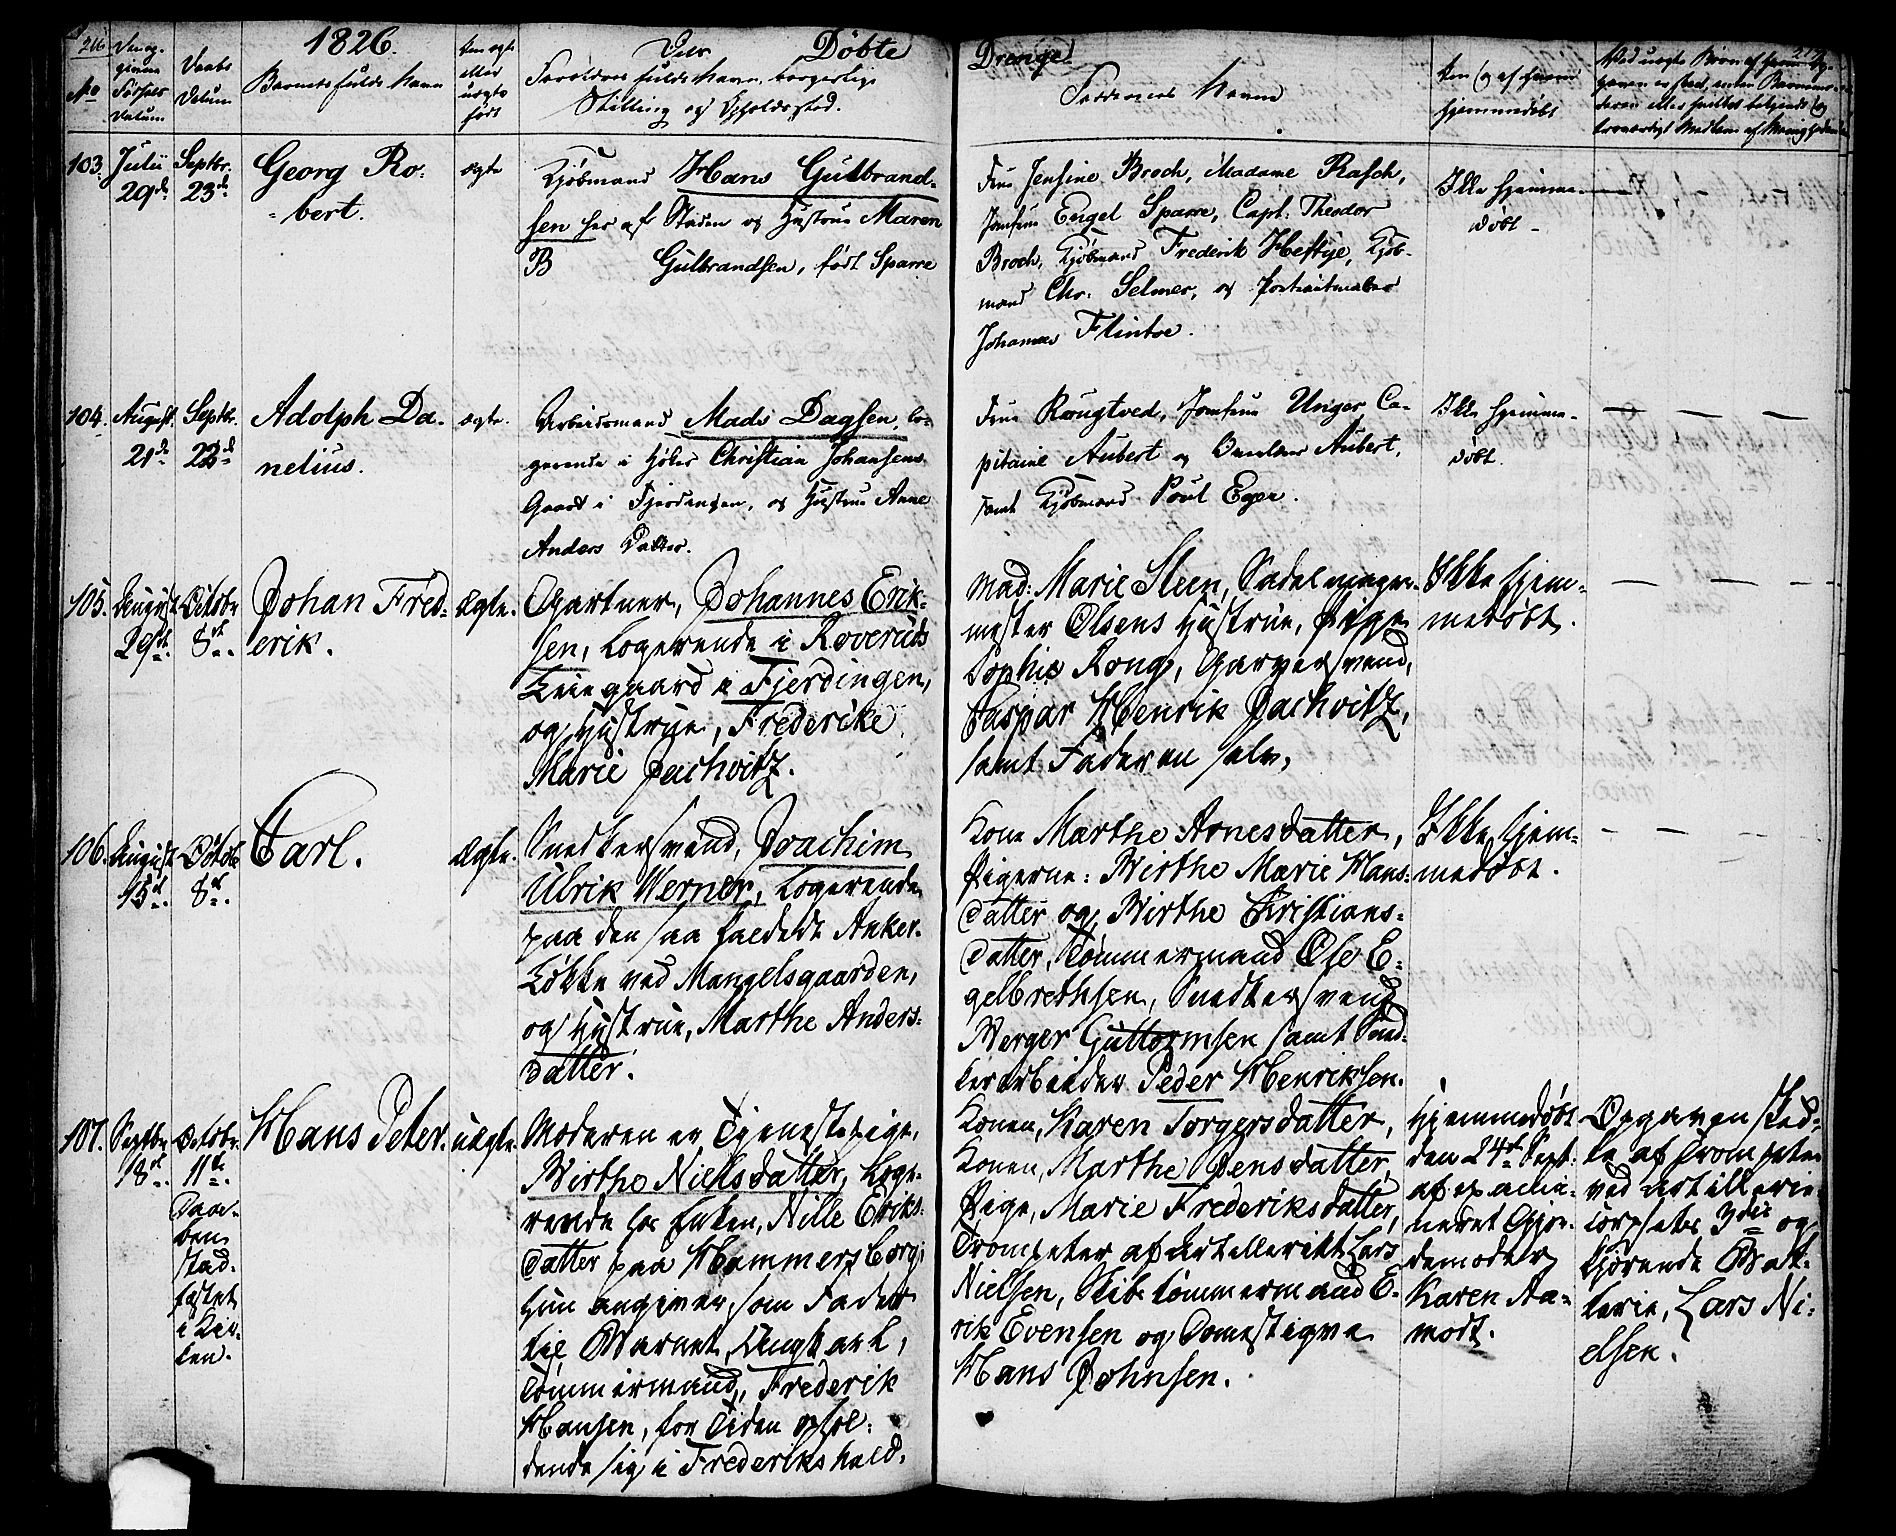 216
1826.
Døbte
Drenge
No
Den op-
givne
Fødsels
Datum
Daabs
Datum
Barnets fulde Navn
Om ægte
eller
uægte
født
Forældres fulde Navn, borgerlige
Stilling og Opholdssted.
Faddernes Navne
Om og af hvem
hjemmedøbt
103.
Julii
29de
Septbr.
23de
Georg Ro-
-bert.
ægte
Kjøbmand Hans Gulbrand-
sen her af Staden og Hustrue Maren
B Gulbrandsen, født Sparre
Frue Jensine Broch, Madame Rasch,
Jomfrue Engel Sparre, Capt: Theodor
Broch, Kjøbmand Frederik Heftye, Kjøb-
mand Chr: Selmer, og Portraitmaler
Johannes Flintoe.
Ikke hjemme-
døbt
104.
August
21de
Septbr.
23de
Adolph Da-
nelius.
ægte.
Arbeidsmand Mads Dagsen, lo-
gerende i Høker Christian Johansens
Gaard i Fjerdingen, og Hustrue Anne
Anders Datter.
Frue Rougtved, Jomfrue Unger, Ca-
pitaine Aubert og Aubert,
samt Kjøbmand Poul Eger.
Ikke hjemme-
døbt.
105.
August
29de.
Octobr
8de.
Johan Fred-
erik.
ægte.
Gartner, Johannes Erik-
sen, Logerende i Roveruds
Leiegaard i Fjerdingen,
og Hustrue, Frederike
Marie Jachwitz.
Mad: Marie Steen, Sadelmager-
mester Olsens Hustrue, Pige
Sophie Rong, Garversvend,
Caspar Henrik Jachvitz,
samt Faderen selv,
Ikke hjem-
medøbt.
106.
August
15de.
Octobr
8de.
Carl.
ægte.
Snedkersvend, Joachim
Ulrik Werner, Logerende
paa den saa kaldede Anker-
Løkke ved Mangelsgaarden,
og Hustrue, Marthe Anders-
datter.
Kone Marthe Arnesdatter,
Pigerne: Birthe Marie Hans-
datter og Birthe Christians-
datter, Tømmermand Ole E-
gelbrethsen, Snedkersvend
Berger Guttormsen samt Sned-
kerarbeider Peder Henriksen.
Ikke hjem-
medøbt.
107.
Septbr
18de.
Octobr.
11te.
Daa-
ben
stad-
fæstet
i Kir-
ken.
Hans Peter.
uægte.
Moderen er Tjenestepige,
Birthe Nielsdatter, Loge-
rende hos Enken, Nille Eriks-
datter paa Hammersborg;
Hun angiver, som Fader
til Barnet, Ungkarl,
Tømmermand, Frederik
Hansen, for Tiden ophol-
dende sig i Frederikshald.
Konen, Karen Torgersdatter,
Konen, Marthe Jensdatter,
Pige, Marie Frederiksdatter,
Trompeter af Artelleriet Lars
Nielsen, Skibstømmermand E-
rik Evensen og Domestique
Hans Johnsen.
Hjemmedøbt
den 24de Sept:
af examine-
neret Gjor-
demoder,
Karen Aa-
modt.
Opgaven sked-
te af Trompeter
ved Artillerie-
corpsets 3die og
kjørende Bat-
terie, Lars Ni-
elsen.